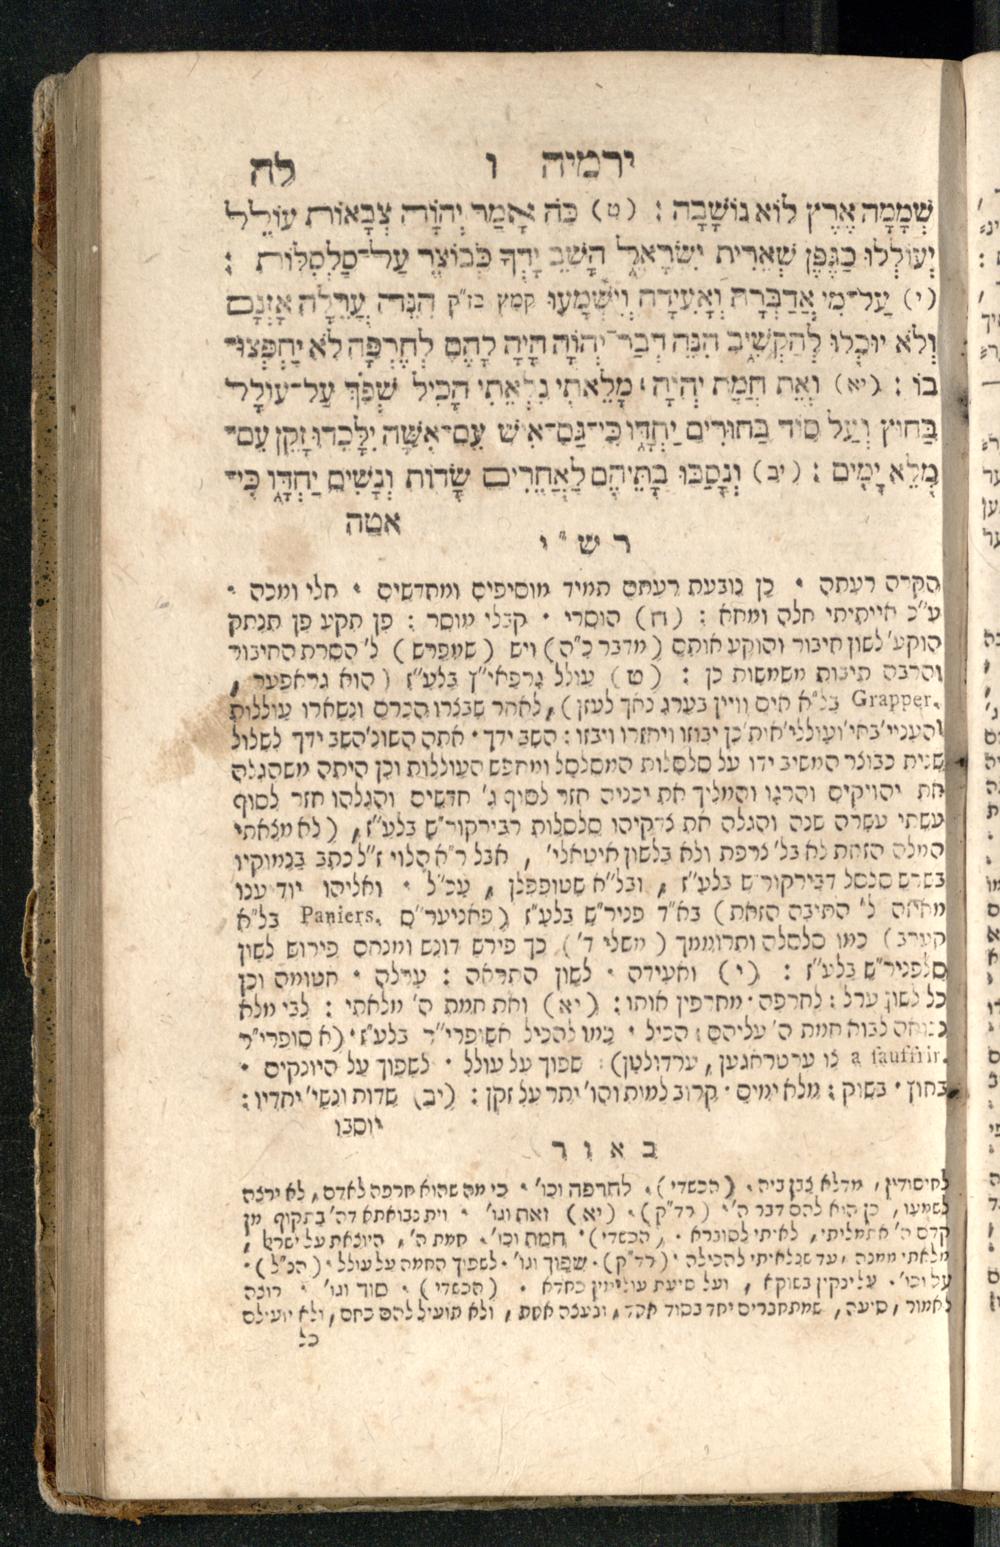 ירמיה ו לח
שְׁמָמָה אֶרֶץ לוֹא נוֹשָׁבָה : (ט) כֹּה אָמַר יְהוָֹה צְבָאוֹת עוֹלֵל
יְעוֹלְלוּ כַגֶּפֶן שְׁאֵרִית יִשְׂרָאֵל הָשֵׁב יָדְךָ כְּבוֹצֵר עַל־סַלְסִלּוֹת :
(י) עַל־מִי אֲדַבְּרָה וְאָעִידָה וְיִשְׁמָעוּ קמץ בז״ק הִנֵּה עֲרֵלָה אָזְנָם
וְלֹא יוּכְלוּ לְהַקְשִׁיב הִנֵּה דְבַר־יְהוָֹה הָיָה לָהֶם לְחֶרְפָּה לֹא יַחְפְּצוּ־
בוֹ : (יא) וְאֵת חֲמַת יְהוָֹה ׀ מָלֵאתִי נִלְאֵתִי הָכִיל שְׁפֹךְ עַל־עוֹלָל
בַּחוּץ וְעַל סוֹד בַּחוּרִים יַחְדָּו כִּי־גַם־אִישׁ עִם־אִשָּׁה יִלָּכֵדוּ זָקֵן עִם־
מְלֵא יָמִים : (יב) וְנָסַבּוּ בָתֵּיהֶם לַאֲחֵרִים שָׂדוֹת וְנָשִׁים יַחְדָּו כִּי־
אטה
ר ש ״ י
הקרה רעתה ׳ כן נובעת רעתם תמיד מוסיפים ומחדשים ׳ חלי ומכה ׳
ע״כ אייתיתי חלה ומחא : (ח) הוסרי ׳ קבלי מוסר : פן תקע פן תנתק
הוקע׳ לשון חיבור והוקע אותם (מדבר כ״ה) ויש (שמפרש) ל׳ הסרת החיבור
והרבה תיבות משמשות כן : (ט) עולל גרפאי״ן בלע״ז (הוא גראפער ,
Grapper. בל״א אים וויין בערג נאך לעזן) , לאחר שבצרו הכרם ונשארו עוללות
כן יבוזו ויחזרו ויבזו : השב ידך ׳ אתה השונ׳ השב ידך לשלול
שנית כבוצר המשיב ידו על סלסלות המסלסל ומחפש העוללות וכן היתה משהגלה
את יהויקים והרגו והמליך את יכניה חזר לסוף ג׳ חדשים והגלהו חזר לסוף
עשתי עשרה שנה והגלה את צדקיהו סלסלות רבירקור״ש בלע״ז , (לא מצאתי
המלה הזאת לא בל׳ צרפת ולא בלשון איטאלי׳ , אבל ר״א הלוי ז״ל כתב בנמוקיו
בשרש סלסל דבירקור״ש בלע״ז , ובל״א שטופפלן , עכ״ל ׳ ואליהו יודיענו
מאיזה ל׳ התיבה הזאת) בא״ד פניר״ש בלע״ז (פאניער״ס Paniers. בל״א
קערב) כמו סלסלה ותרוממך (משלי ד׳) כך פירש דונש ומנחם פירוש לשון
סלפניר״ש בלע״ז : (י) ואעידה ׳ לשון התראה : ערלה ׳ אטומה וכן
כל לשון ערל : לחרפה ׳ מחרפין אותו : (יא) ואת חמת ה׳ מלאתי : לבי מלא
נבואה לבוא חמת ה׳ עליהם : הכיל ׳ כמו להכיל אשיפרי״ר בלע״ז ׳ (א סופרי״ר
a fauffrir. צו ערטראגען , ערדולטן) : שפוך על עולל ׳ לשפוך על היונקים ׳
בחוץ ׳ בשוק : מלא ימים ׳ קרוב למות והו׳ יתר על זקן : (יב) שדות ונשי׳ יחדיו :
יוסבו
ב א ו ר
לחיסודין , מדלא צבן ביה ׳ (הכשדי) ׳ לחרפה וכו׳ ׳ כי מה שהוא חרפה לאדם , לא ירצה
לשמעו , כן הוא להם דבר ה׳ ׳ (רד״ק) ׳ (יא) ואת וגו׳ ׳ וית נבואתא דה׳ בתקוף מן
קדם ה׳ אתמליתי , לאיתי לסוברא ׳ (הכשדי) ׳ חמת וכו׳ ׳ חמת ה׳ , היוצאת על ישראל ,
מלאתי ממנה , עד שנלאיתי להכילה ׳ (רד״ק) ׳ שפוך וגו׳ ׳ לשפיך החמה על עולל ׳ (הנ״ל) ׳
על וכו׳ ׳ על ינקין בשוקא , ועל סיעת עולימין כחדא ׳ (הכשדי) ׳ סוד וגו׳ ׳ רוצה
לאמור , סיעה , שמתחברים יחד בסוד אחד , ובעצה אחת , ולא תועיל להם כחם , ולא יועילם
כל